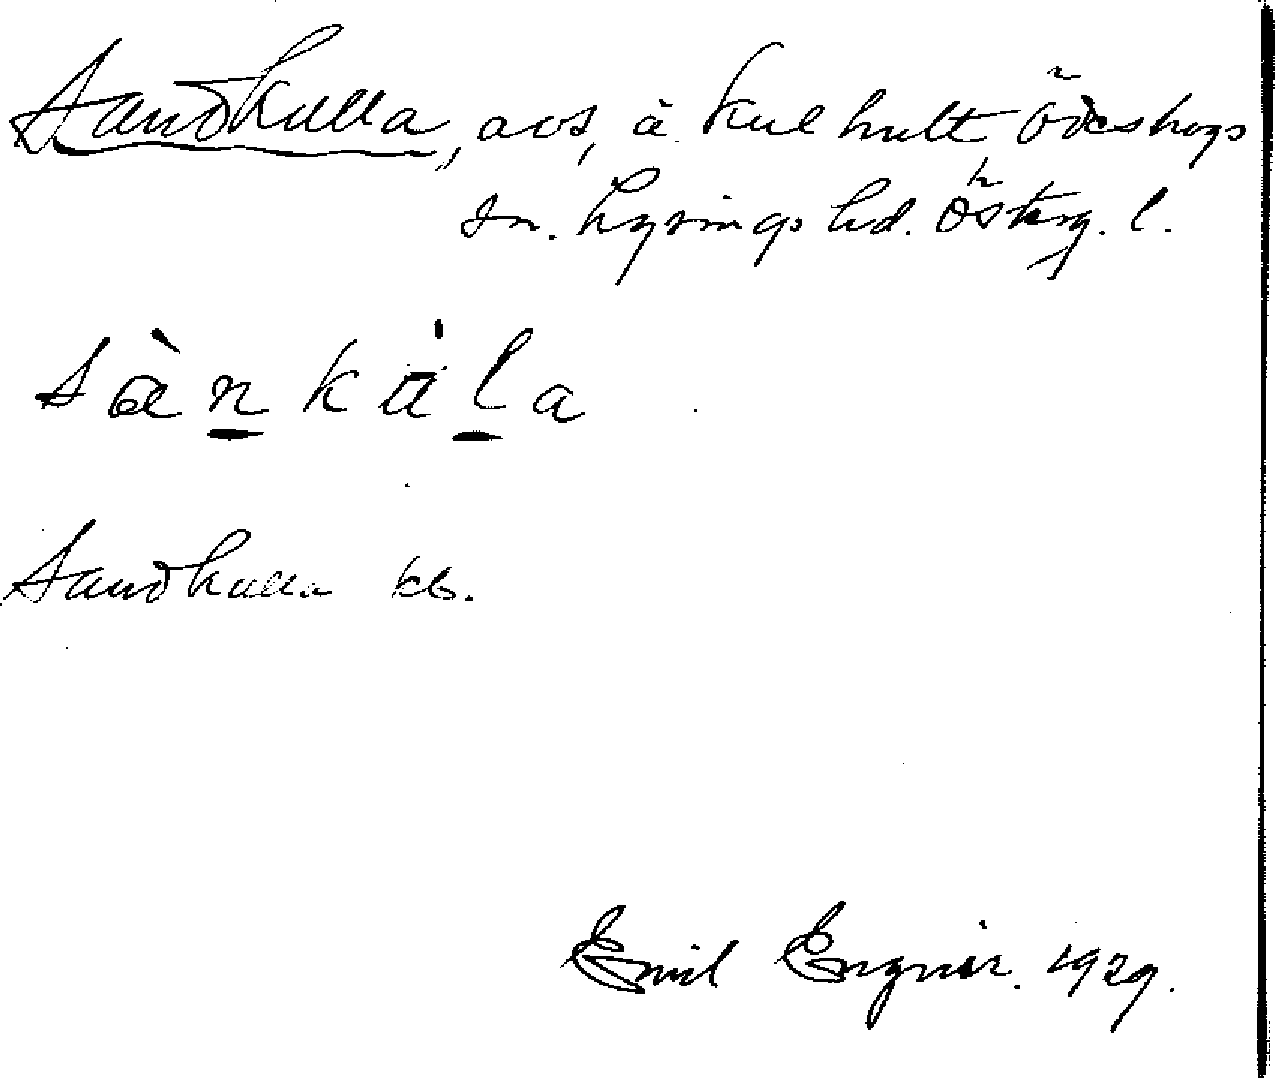 Sandkulla, avs, å Kulhult Ödeshögs
sn. Lysings hd. Österg. l.
sàn kúla
Sandkulla kb.
Emil 1929.